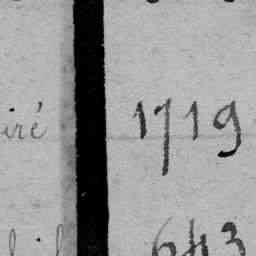 iré 1719
643